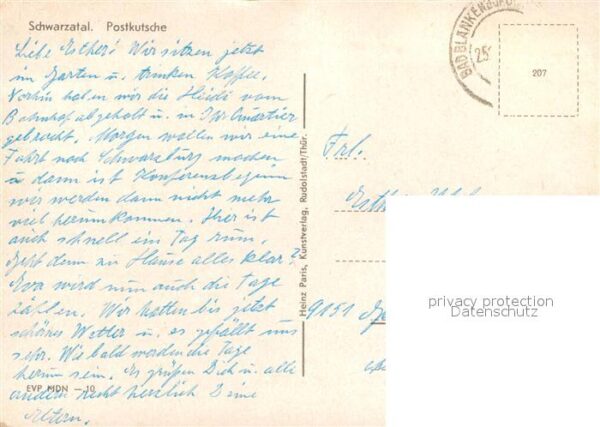 Schwarzatal. Postkutsche
Liebe Esther! Wir sitzen jetzt
im Garten u. trinken Kaffee.
Vorhin haben wir die Heidi vom
Bahnhof abgeholt u. in Ihr Quartier
gebracht. Morgen wollen wir eine
Fahrt nach Schwarzburg machen
u dann ist Konferenzbeginn
wir werden dann nicht mehr
viel herumkommen. Hier ist
auch schnell ein Tag rum,
geht denn zu Hause alles klar?
Eva wird nun auch die Tage
zählen. Wir hatten bis jetzt
schönes Wetter u. es gefällt uns
sehr. Wie bald werden die Tage
herum sein. Es grüßen Dich u. alle
andern recht herzlich Deine
Eltern.
EVP MDN — 10
Heinz Paris, Kunstverlag, Rudolstadt/Thür.
BAD BLANKENBURG
25
207
Frl.
Esther
9151
privacy protection
Datenschutz